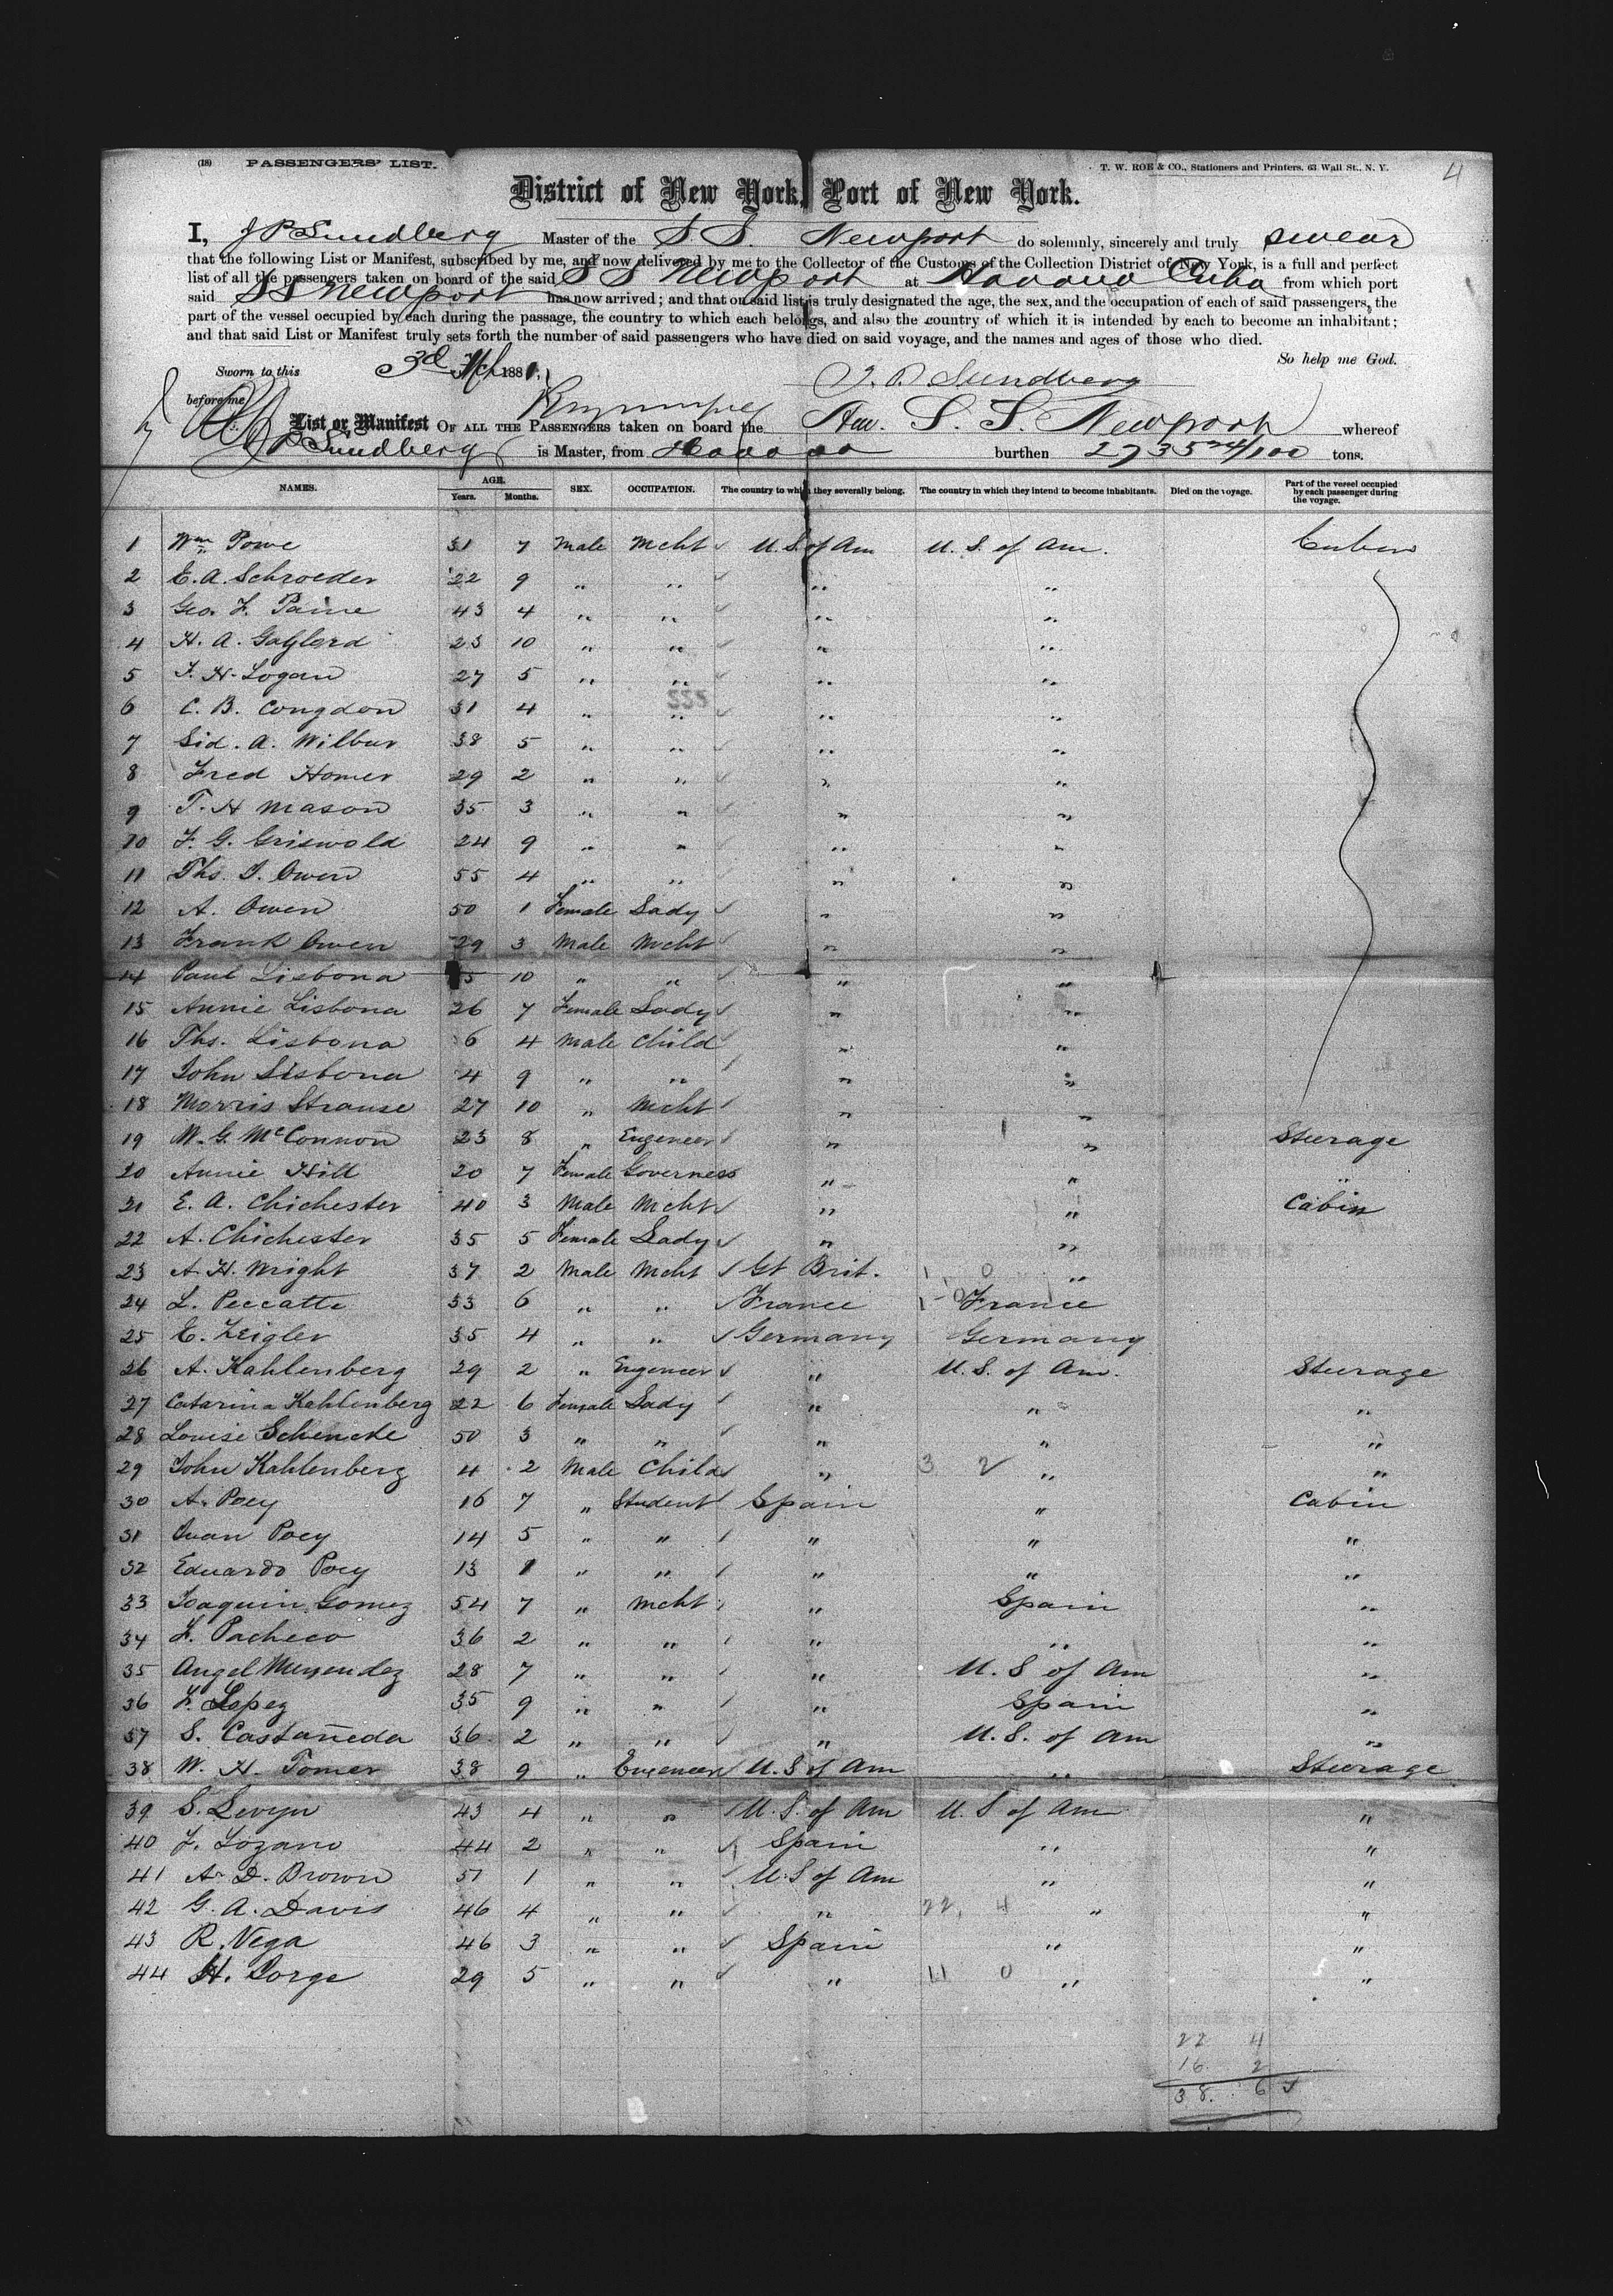 (18) PASSENGERS' LIST. T. W. ROE & CO., Stationers and Printers, 63 Wall St., N. Y. 4
District of New York, Port of New York.
I, J P Sundberg Master of the S. S. Newport do solemnly, sincerely and truly swear
that the following List or Manifest, subscribed by me, and now delivered by me to the Collector of the Customs of the Collection District of New York, is a full and perfect
list of all the passengers taken on board of the said S S Newport at Havana Cuba from which port
said S S Newport has now arrived; and that on said list is truly designated the age, the sex, and the occupation of each of said passengers, the
part of the vessel occupied by each during the passage, the country to which each belongs, and also the country of which it is intended by each to become an inhabitant;
and that said List or Manifest truly sets forth the number of said passengers who have died on said voyage, and the names and ages of those who died.
So help me God.
Sworn to this 3d Mch 1881,
J. P. Sundberg
before me
List or Manifest OF ALL THE PASSENGERS taken on board the Am. S. S. Newport whereof
J P Sundberg is Master, from Havana burthen 2735 24/100 tons.
NAMES. AGE. Years. Months. SEX. OCCUPATION. The country to which they severally belong. The country in which they intend to become inhabitants. Died on the voyage. Part of the vessel occupied by each passenger during the voyage.
1 Wm Powe 31 7 Male Mcht U.S. of Am U. S. of Am. Cabin
2 E. A. Schroeder 22 9 " " " "
3 Geo. F. Paine 43 4 " " " "
4 H. A. Gaylord 23 10 " " " "
5 F. H. Logan 27 5 " " " "
6 C. B. Congdon 31 4 " " " "
7 Sid. A. Wilbur 38 5 " " " "
8 Fred Homer 29 2 " " " "
9 T. H Mason 35 3 " " " "
10 F. G. Griswold 24 9 " " " "
11 Ths. J. Owen 55 4 " " " "
12 A. Owen 50 1 Female Lady " "
13 Frank Owen 29 3 Male Mcht " "
14 Paul Lisbona 5 10 " " " "
15 Annie Lisbona 26 7 Female Lady " "
16 Ths. Lisbona 6 4 Male Child " "
17 John Lisbona 4 9 " " " "
18 Morris Strause 27 10 " Mcht " "
19 W. G. McConnon 23 8 " Engeneer " " Steerage
20 Annie Hill 20 7 Female Governess " " "
21 E. A. Chichester 40 3 Male Mcht " " Cabin
22 A. Chichester 35 5 Female Lady " "
23 A. H. Wright 37 2 Male Mcht Gt Brit. 1 0 "
24 L. Peccatte 33 6 " " France 1 - 0 France
25 E. Zeigler 35 4 " " Germany Germany
26 A. Kahlenberg 29 2 " Engeneer " U. S. of Am. Steerage
27 Catarina Kahlenberg 22 6 Female Lady " " "
28 Louise Schencke 50 3 " " " " "
29 John Kahlenberg 4 2 Male Child " 3 2 " "
30 A. Poey 16 7 " Student Spain " Cabin
31 Juan Poey 14 5 " " " " "
32 Eduardo Poey 13 1 " " " " "
33 Joaquin Gomez 54 7 " Mcht " Spain "
34 F. Pacheco 36 2 " " " " "
35 Angel Menendez 28 7 " " " U. S of Am "
36 F. Lopez 35 9 " " " Spain "
37 S. Castañeda 36 2 " " " U. S. of Am "
38 W. H. Tomer 38 9 " Engeneer U. S of Am " Steerage
39 S. Levyn 43 4 " " U. S. of Am U. S of Am "
40 F. Lozano 44 2 " " Spain " "
41 A. D. Brown 51 1 " " U. S of Am " "
42 G. A. Davis 46 4 " " " 22, 4 " "
43 R. Vega 46 3 " " Spain " "
44 H. Jorge 29 5 " " " 11 0 " "
22 4
16 2
38. 6